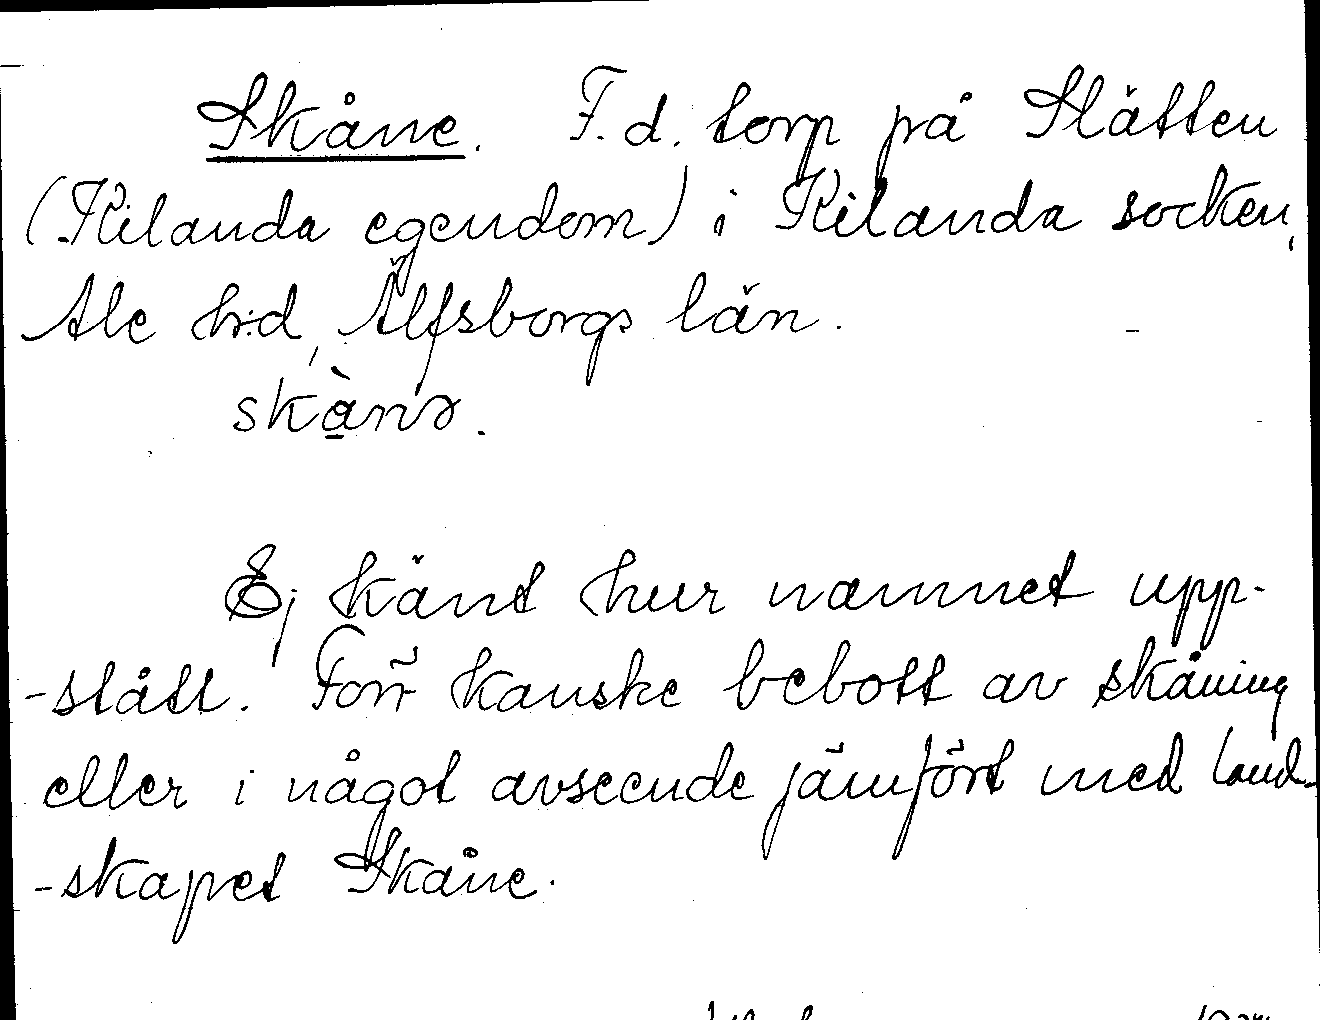 Skåne. F.d. torp på Slätten
(Kilanda egendom) i Kilanda socken,
Ale h:d, Älfsborgs län.
skànə.
Ej känt hur namnet upp-
-stått. Förr kanske bebott av skåning
eller i något avseende jämfört med land-
-skapet Skåne.